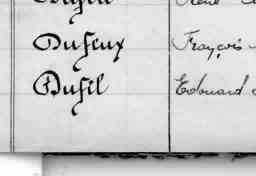 René
Dufeux François
Dufil Edouard